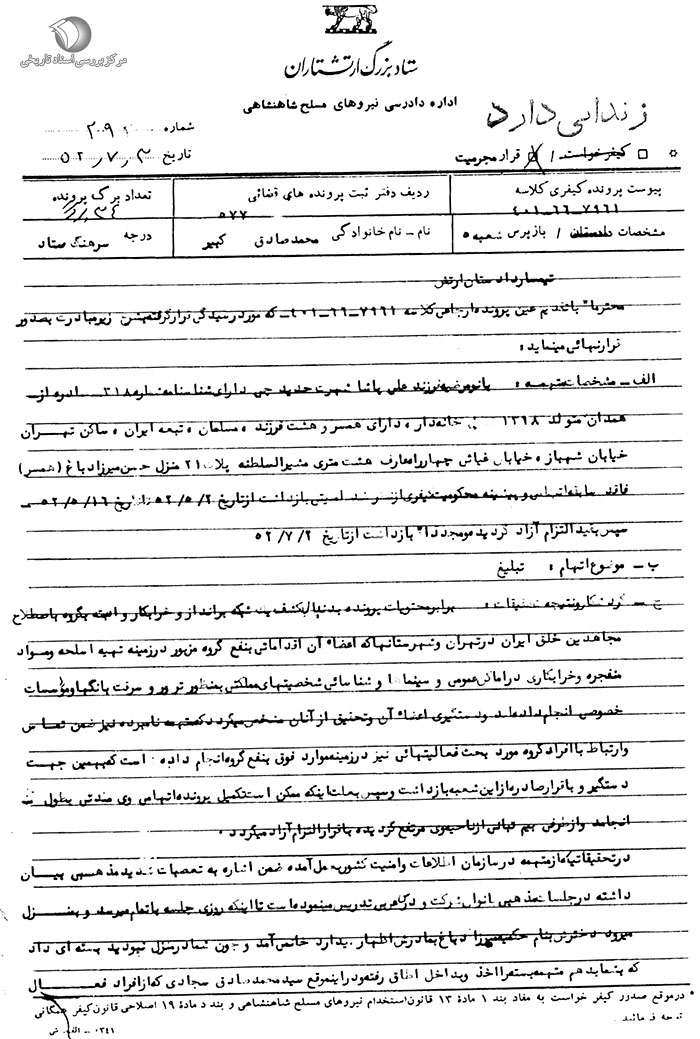 مرکز بررسی اسناد تاریخی
ستاد بزرگ ارتشتاران
اداره دادرسی نیروهای مسلح شاهنشاهی
زندانی دارد
شماره ۲۰۹
تاریخ ۵۲،۷،۳
کیفرخواست / قرار مجرمیت
پیوست پرونده کیفری کلاسه ردیف دفتر ثبت پرونده های قضائی تعداد برگ پرونده
۴۰۱-۶۶-۷۹۶۱ ۵۷۷
مشخصات دادستان / بازپرس شعبه ۵ نام - نام خانوادگی محمدصادق کبیر درجه سرهنگ ستاد
تیمسار دادستان ارتش
محترما" باتقدیم عین پرونده ارجاعی کلاسه ۷۹۶۱-۶۶-۴۰۱ که مورد رسیدگی قرارگرفته بشرح زیر مبادرت بصدور
قرارنهائی مینماید:
الف - مشخصات متهمه: بانو مرضیه فرزند علی پاشا شهرت حدیدچی دارای شناسنامه شماره ۳۱۸ صادره از
همدان متولد ۱۳۱۸ شغل خانه دار، دارای همسر و هشت فرزند، مسلمان، تبعه ایران، ساکن تهران
خیابان شهباز، خیابان غیاثی چهارراه معارف هشت متری مشیرالسلطنه پلاک ۲۱ منزل حسن میرزا دباغ (همسر)
فاقد سابقه اتهامی و پیشینه محکومیت کیفری از بازداشت ازتاریخ ۵۲/۵/۲ تا تاریخ ۵۲/۵/۱۶
سپس بقید التزام آزاد گردیده و مجددا" بازداشت ازتاریخ ۵۲/۷/۲
ب - موضوع اتهام: تبلیغ
ج - گردشکار و نتیجه تحقیقات: برابر محتویات پرونده بدنبال کشف یک شبکه برانداز و خرابکار وابسته بگروه باصطلاح
مجاهدین خلق ایران درتهران و شهرستانها که اعضاء آن اقداماتی بنفع گروه مزبور درزمینه تهیه اسلحه ومواد
منفجره وخرابکاری دراماکن عمومی و سینماها و شناسائی شخصیتهای مملکتی بمنظور ترور و سرقت بانکها ومؤسسات
خصوصی انجام داده اند ودستگیری اعضاء آن وتحقیق ازآنان مشخص میگردد که متهمه نامبرده نیز ضمن تماس
وارتباط باافراد گروه مورد بحث فعالیتهائی نیز درزمینه موارد فوق بنفع گروه انجام داده است که بهمین جهت
دستگیر و باقرار صادره ازاین شعبه بازداشت وسپس بعلت اینکه ممکن است تکمیل پرونده اتهامی وی مدتی بطول
انجامد وازطرفی بیم تبانی ازناحیه وی مرتفع گردیده باقرار التزام آزاد میگردد.
درتحقیقاتیکه ازمتهمه درسازمان اطلاعات وامنیت کشور بعمل آمده ضمن اشاره به تعصبات شدید مذهبی بیان
داشته درجلسات مذهبی بانوان شرکت و درس عربی تدریس مینموده است تااینکه روزی جلسه باتمام میرسد و بمنزل
میرود دخترش بنام حکیمه میرزا دباغ بمادرش اظهار میدارد خانمی آمد و چون شما درمنزل نبودید بسته ای داد
که بشما بدهم متهمه بسته را اخذ وبداخل اطاق رفته ودراین موقع سیدمحمدصادق سجادی که ازافراد فعال
* درموقع صدور کیفر خواست به مفاد بند ۱ مادۀ ۱۳ قانون استخدام نیروهای مسلح شاهنشاهی و بند د مادۀ ۱۹ اصلاحی قانون کیفر همگانی
توجه فرمایند.
۰۳۴۱ - الف. ش